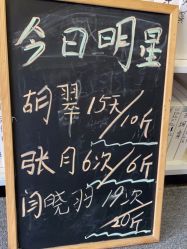 今日明星
胡翠 15天/10斤
张月 6次/6斤
闫晓羽 19次
/20斤